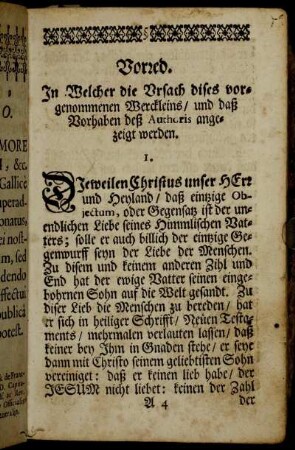 I
O.
MORE
I, &c.
Gallicè
uperad-
onatus,
ei nost-
m, sed
dendo
ffectui
publicâ
potest.
Vorred.
In Welcher die Vrsach dises vor-
genommenen Werckleins / und daß
Vorhaben deß Authoris ange-
zeigt werden.
I.
DJeweilen Christus unser HErr
und Heyland / daß eintzige Ob-
jectum, oder Gegensatz ist der un-
endlichen Liebe seines Himmlischen Vat-
ters; solle er auch billich der eintzige Ge-
genwurff seyn der Liebe der Menschen.
Zu disem und keinem anderen Zihl und
End hat der ewige Vatter seinen einge-
bohrnen Sohn auf die Welt gesandt. Zu
diser Lieb die Menschen zu bereden / hat
er sich in heiliger Schrifft / Neuen Testa-
ments / mehrmalen verlauten lassen / daß
keiner bey Jhm in Gnaden stehe / er seye
dann mit Christo seinem geliebtisten Sohn
vereiniget: daß er keinen lieb habe / der
JESUM nicht liebet: keinen der Zahl
A 4 der